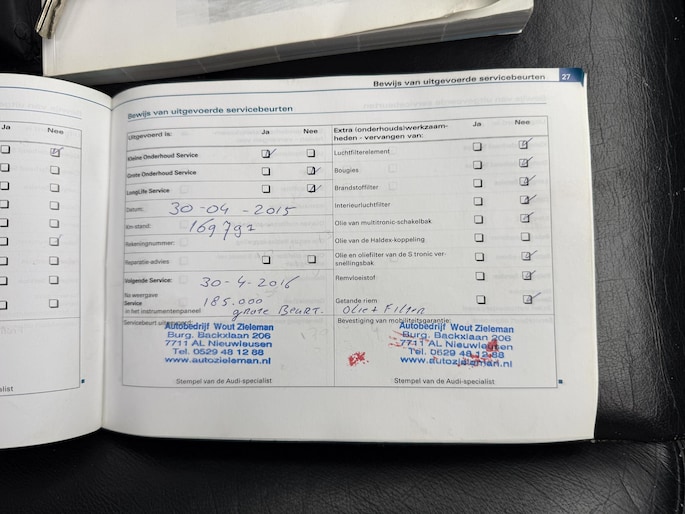 Bewijs van uitgevoerde servicebeurten 27
Bewijs van uitgevoerde servicebeurten
Ja Nee
Uitgevoerd is: Ja Nee
Kleine Onderhoud Service
Grote Onderhoud Service
LongLife Service
Datum: 30-04-2015
Km-stand:
Rekeningnummer:
Reparatie-advies
Volgende Service: 30-4-2016
Na weergave
Service 185.000
in het instrumentenpaneel grote Beurt.
Servicebeurt uitgevoerd:
Autobedrijf Wout Zieleman
Burg. Backxlaan 206
7711 AL Nieuwleusen
Tel. 0529 48 12 88
www.autozieleman.nl
Stempel van de Audi-specialist
Extra (onderhouds)werkzaam-
heden - vervangen van: Ja Nee
Luchtfilterelement
Bougies
Brandstoffilter
Interieurluchtfilter
Olie van multitronic-schakelbak
Olie van de Haldex-koppeling
Olie en oliefilter van de S tronic ver-
snellingsbak
Remvloeistof
Getande riem
Olie + Filter
Bevestiging van mobiliteitsgarantie:
Autobedrijf Wout Zieleman
Burg. Backxlaan 206
7711 AL Nieuwleusen
Tel. 0529 48 12 88
www.autozieleman.nl
Stempel van de Audi-specialist